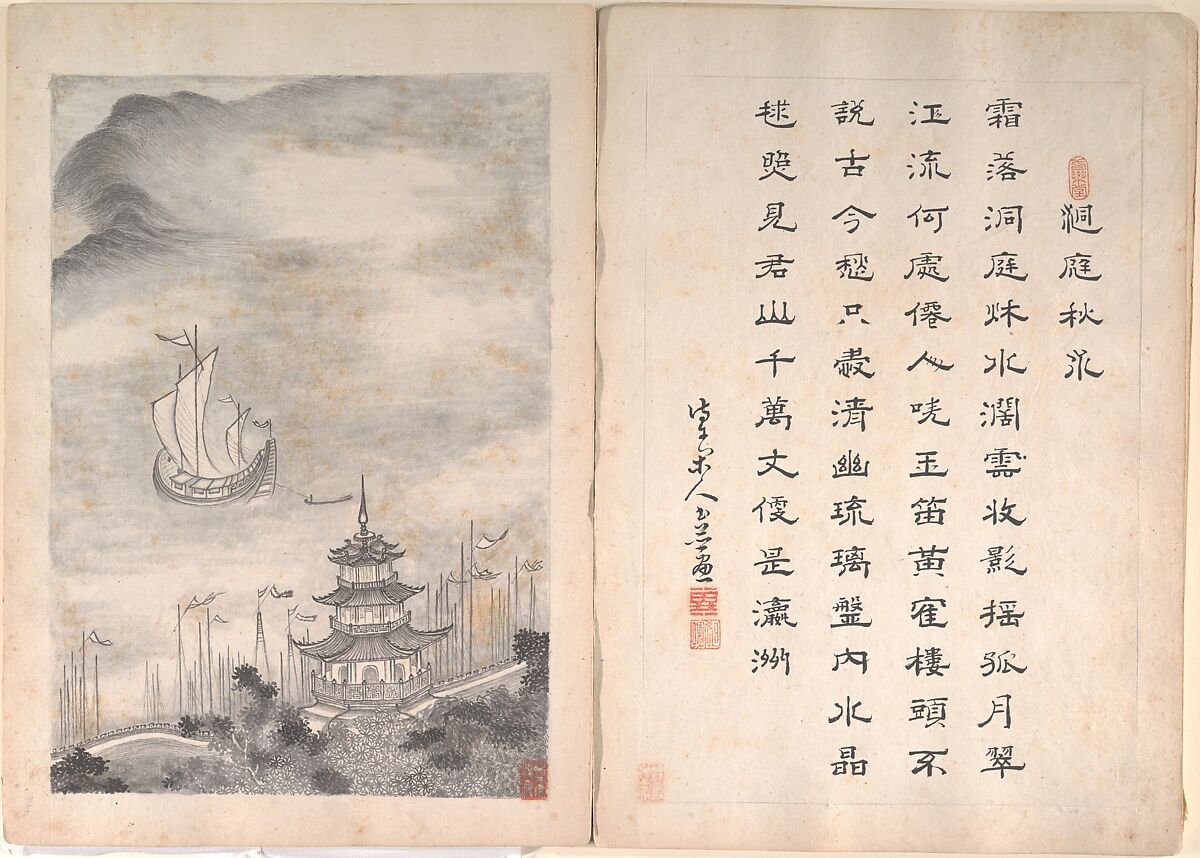 洞庭秋水
霜落洞庭秌水濶雲收影揺孤月翠
江流何處僊人吹玉笛黄隺樓頭不
説古今愁只愛清幽琉璃盤内水晶
毬照見君山千萬丈便是瀛洲
木人書并畫